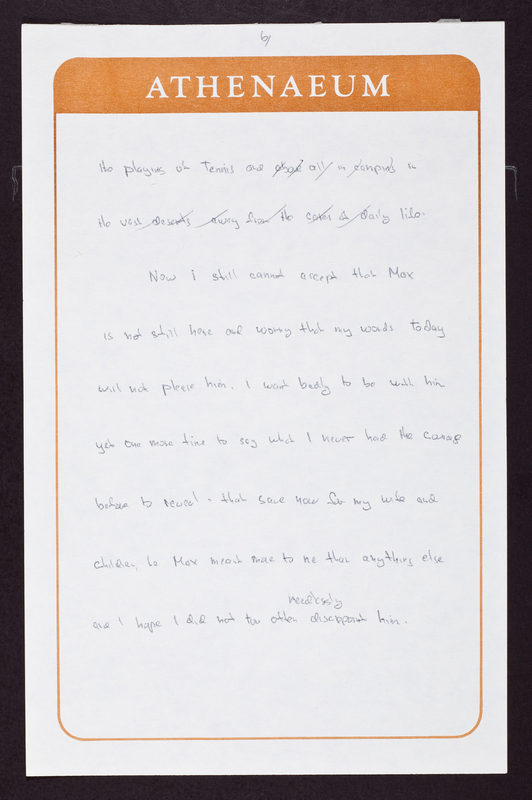 6/
ATHENAEUM
the playing of Tennis and above all in camping in
the vast deserts away from the cares of daily life.
Now i still cannot accept that Max
is not still here and worry that my words today
will not please him. I want badly to be with him
yet one more time to say what I never had the courage
before to reveal - that save now for my wife and
children, to Max meant more to me than anything else
needlessly
and I hope I did not too often disappoint him.